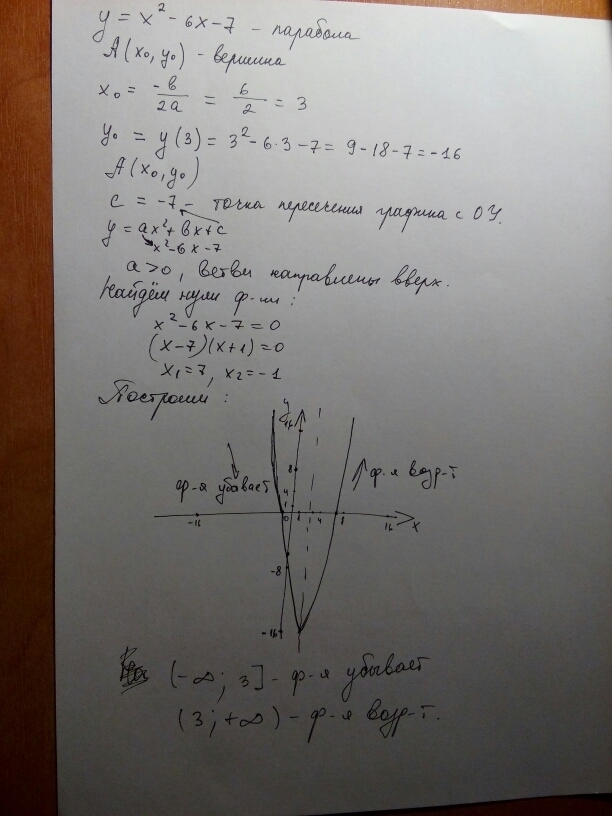 y = x² - 6x - 7 - парабола
A(x₀, y₀) - вершина
x₀ = -b/2a = 6/2 = 3
y₀ = y(3) = 3² - 6·3 - 7 = 9 - 18 - 7 = -16
A(x₀, y₀)
c = -7 - точка пересечения графика с ОУ.
y = ax² + bx + c
x² - 6x - 7
a > 0, ветви направлены вверх.
Найдём нули ф-ии:
x² - 6x - 7 = 0
(x - 7)(x + 1) = 0
x₁ = 7, x₂ = -1
Построим:
y
16
8
ф-я возр-т
ф-я убывает
4
1
-16 0 1 4 8 16 x
-8
-16
(-∞; 3] - ф-я убывает
(3; +∞) - ф-я возр-т.